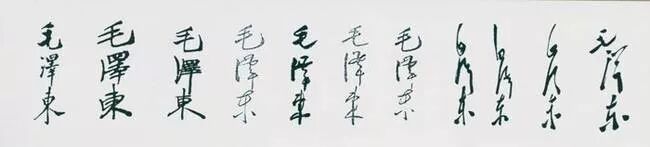 毛澤東
毛澤東
毛澤東
毛泽东
毛澤東
毛泽東
毛泽东
毛泽东
毛泽东
毛泽东
毛泽东